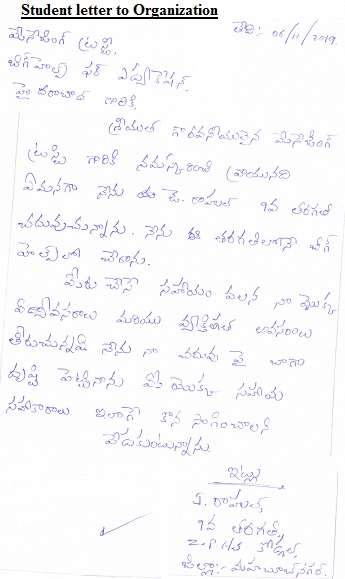 Student letter to Organization
తేది:- 06/11/2019.
మేనేజింగ్ ట్రస్టీ,
బిగ్ హెల్ప్ ఫర్ ఎడ్యుకేషన్.
హైదరాబాద్ గారికి,
శ్రీయుత గౌరవనీయులైన మేనేజింగ్
ట్రస్టీ గారికి నమస్కరించి వ్రాయునది
ఏమనగా నేను జె. రాహుల్ 9వ తరగతి
చదువుచున్నాను. నేను ఈ తరగతిలోనే బిగ్
హెల్ప్ లో చేరాను.
మీరు చేసే సహాయం వలన నా యొక్క
విద్యావసరాలు మరియు వ్యక్తిగత అవసరాలు
తీరుచున్నవి నేను నా చదువు పై బాగా
దృష్టి పెట్టినాను మీ యొక్క సహాయ
సహకారాలు ఇలాగే కొనసాగించాలని
వేడుకుంటున్నాను.
ఇట్లు
J. రాహుల్,
9వ తరగతి,
Z.P.H.S కోడ్గల్,
జిల్లా:- మహబూబ్ నగర్.